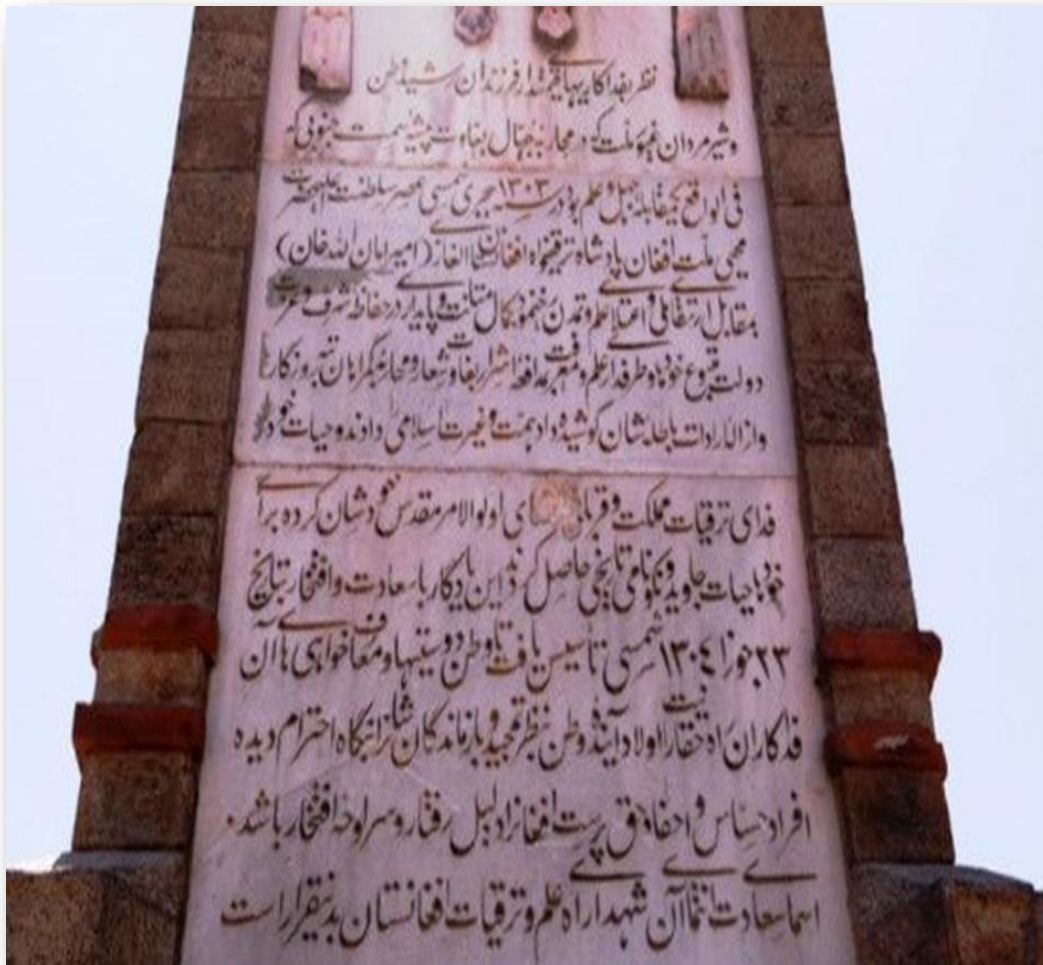 نظر بفداکاریهای قیمتدار فرزندان رشید وطن
و شیر مردان غیور ملت که در محاربه جهال بغاوت پیشه سمت جنوبی که
فی الواقع یکمقابله جهل و علم بود در سنه ۱۳۰۳ هجری شمسی عصر سلطنت اعلیحضرت
محیی ملت افغان پادشاه ترقیخواه افغانستان الغازی (امیر امان الله خان)
بمقابل ارتقای ملی و اعتلای علم و تمدن بکمال متانت و پایداری در حفاظه شرف و عزت
دولت متبوع خود ها و طرفداری علم و معرفت بمدافعه اشرار بغاوت شعار و محاربه گمراهان تیره روزگار
و از اله ارادات باطله شان کوشیده داد همت و غیرت اسلامی را دادند و حیات خود را
فدای ترقیات مملکت و اولوالامر مقدس خودشان کرده برای
خود ها حیات جاوید و نیکونامی تاریخی حاصل کردند این یادگار با سعادت و افتخار بتاریخ
۲۳ جوزای ۱۳۰٤ شمسی تأسیس یافت تا وطن دوستیها و معارف خواهی های آن
فداکاران راه حقانیت را اولاد آینده وطن بنظر تمجید و بازماندگان شانرا بنگاه احترام دیده
افراد حساس و احفاد حق پرست افغانرا دلیل رفتار و سر لوحه افتخار باشد .
اسمای سعادت انتمای آن شهدای راه علم و ترقیات افغانستان بدینقرار است